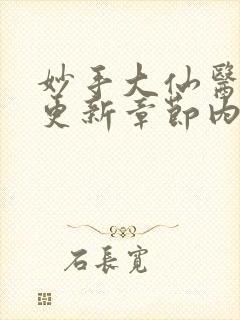 妙手大仙醫
更新章節內
石長寬